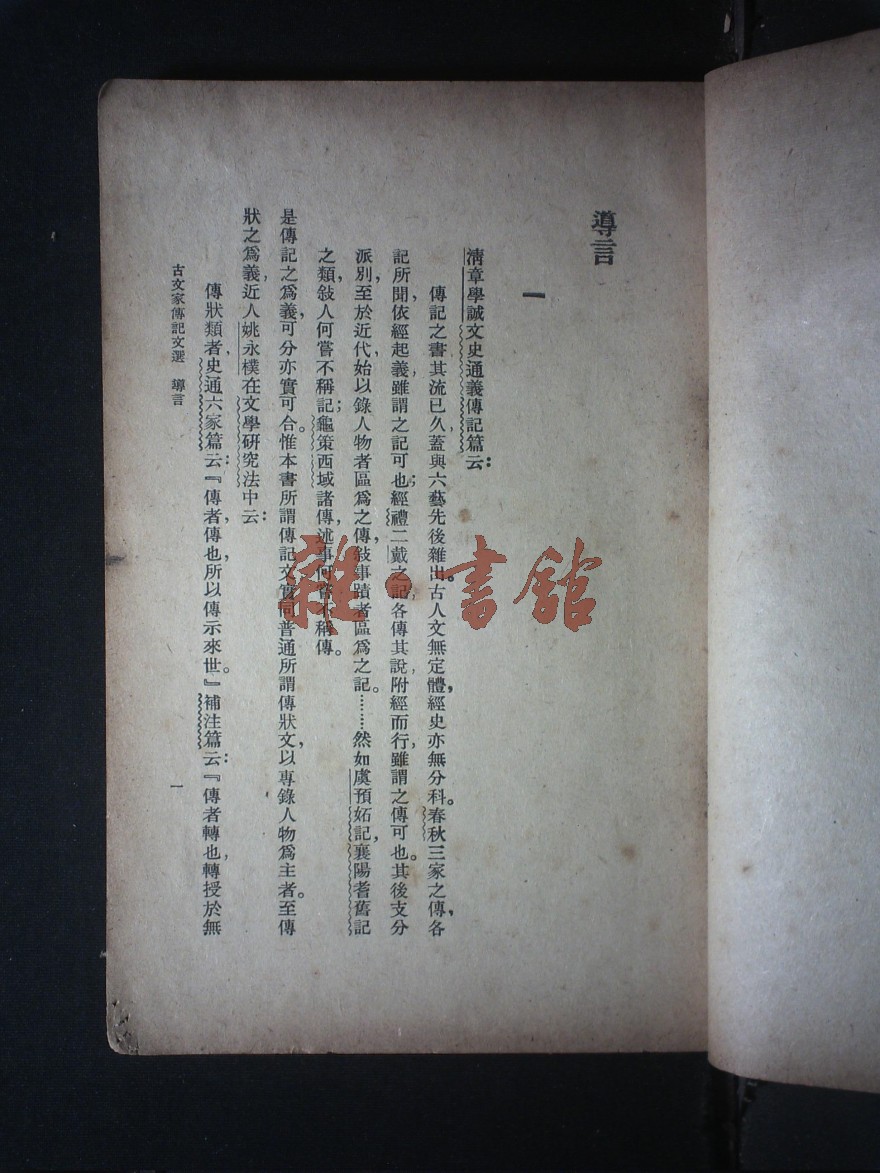 導言
一
清章學誠文史通義傳記篇云：
傳記之書其流已久，蓋與六藝先後雜出。古人文無定體，經史亦無分科。春秋三家之傳，各
記所聞，依經起義，雖謂之記可也；經禮二戴之記，各傳其說，附經而行，雖謂之傳可也。其後支分
派別，至於近代，始以錄人物者區爲之傳，敍事蹟者區爲之記。……然如虞預妬記，襄陽耆舊記
之類，敍人何嘗不稱記；龜策西域諸傳，述事何嘗不稱傳。
是傳記之爲義，可分亦實可合。惟本書所謂傳記文，實同普通所謂傳狀文，以專錄人物爲主者。至傳
狀之爲義，近人姚永樸在文學硏究法中云：
傳狀類者，史通六家篇云：『傳者，傳也，所以傳示來世。』補注篇云：『傳者轉也，轉授於無
古文家傳記文選　導言
一
雜·書館